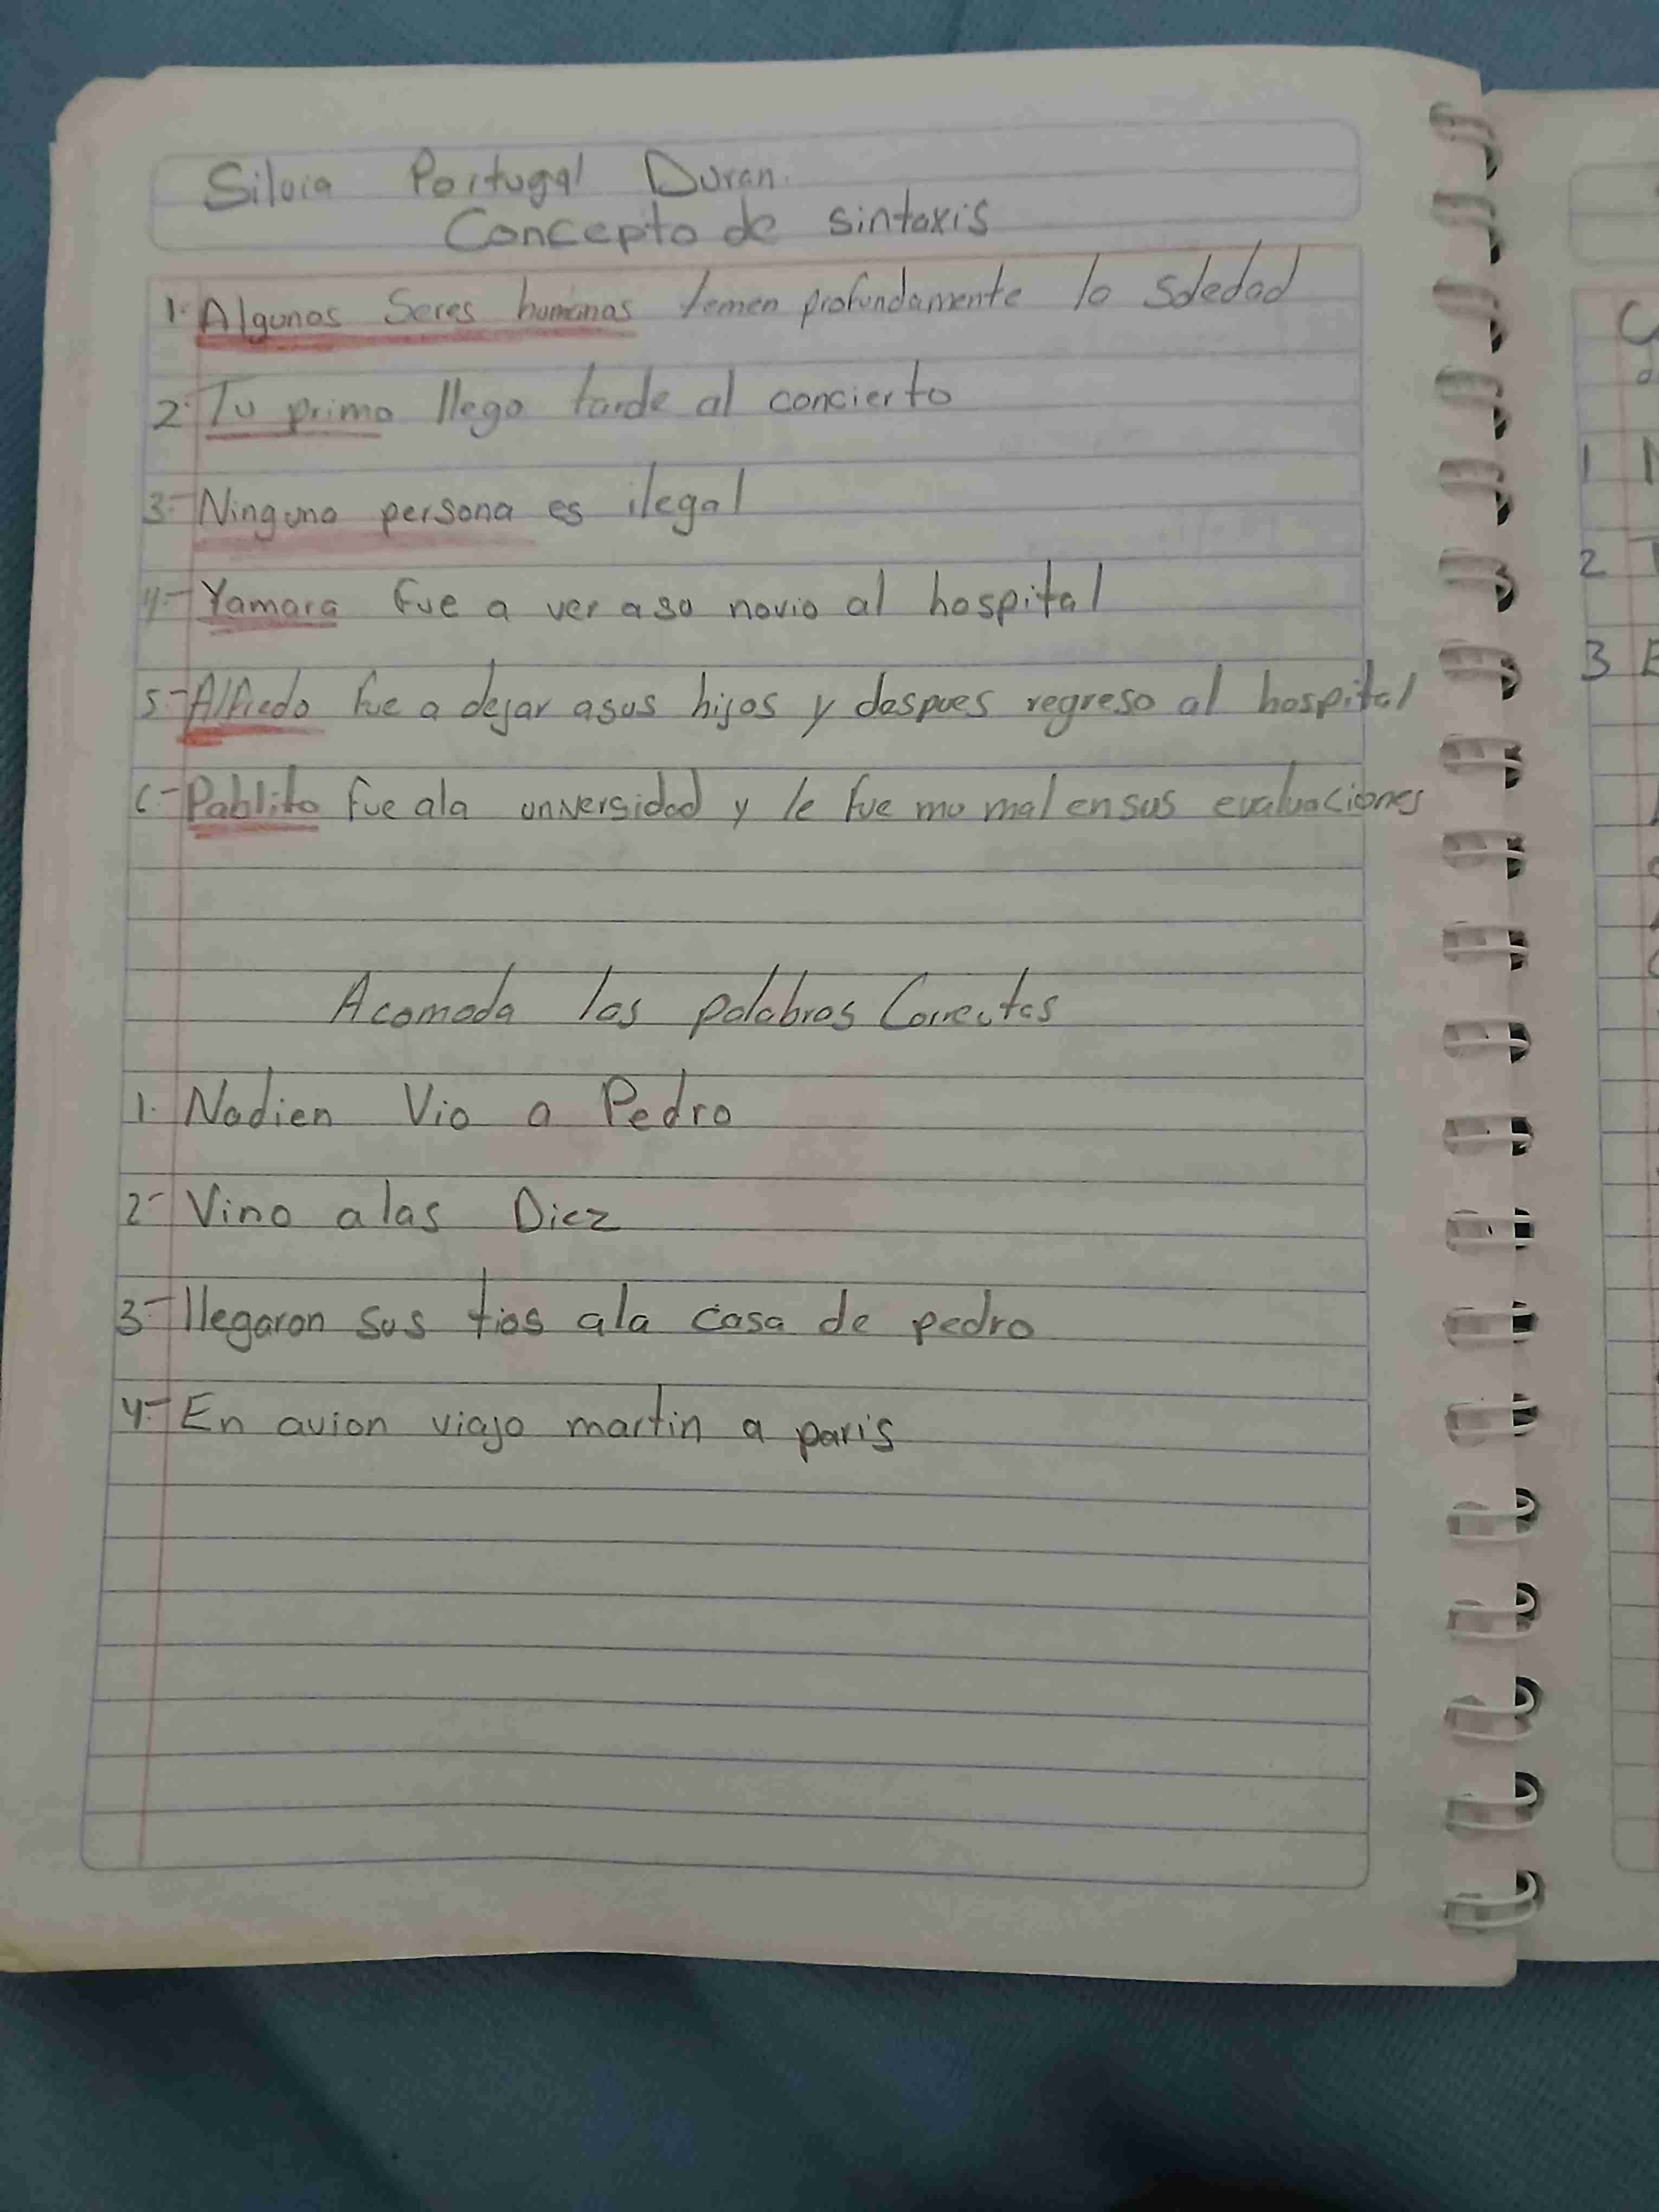 Silvia Portugal Duran.
Concepto de sintaxis
1- Algunos Seres humanos temen profundamente la soledad
2- Tu primo llego tarde al concierto
3- Ninguna persona es ilegal
4- Yamara fue a ver a su novio al hospital
5- Alfredo fue a dejar asus hijos y despues regreso al hospital
6- Pablito fue ala universidad y le fue mu mal en sus evaluaciones
Acomoda las palabras Correctas
1. Nadien Vio a Pedro
2- Vino alas Diez
3- llegaron sus tios ala casa de pedro
4- En avion viajo martin a paris
1
2
3